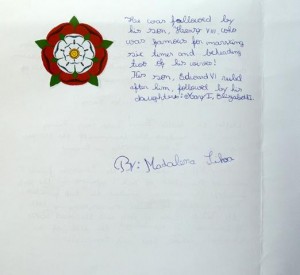 He was followed by
his son, Henry VIII, who
was famous for marrying
six times and beheading
two of his wives!
His son, Edward VI ruled
after him, followed by his
daughters: Mary I, Elizabeth I.
By: Madalena